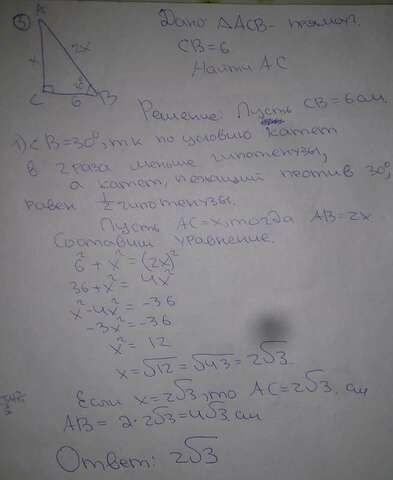 5
A
x
2x
C
6
B
Дано: ΔACB - прямоуг.
CB=6
Найти AC
Решение: Пусть CB=6см.
1) <B=30°, т.к по условию катет
в 2 раза меньше гипотенузы,
а катет, лежащий против 30°,
равен 1/2 гипотенузы.
Пусть AC=x, тогда AB=2x.
Составим уравнение.
6²+x²=(2x)²
36+x²=4x²
x²-4x²=-36
-3x²=-36
x²=12
x=√12=√4·3=2√3
Если x=2√3, то AC=2√3 см
AB=2·2√3=4√3 см
Ответ: 2√3